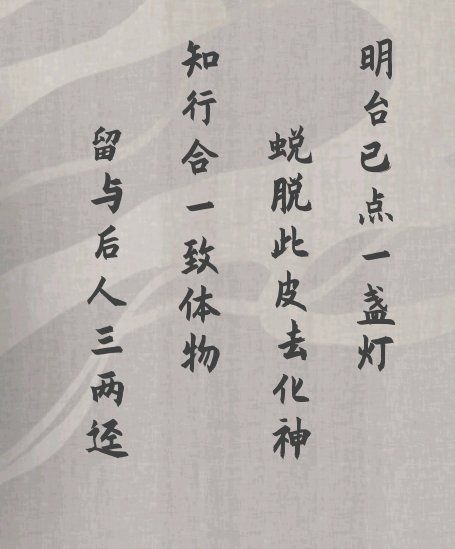 明台已点一盏灯
蜕脱此皮去化神
知行合一致体物
留与后人三两迳